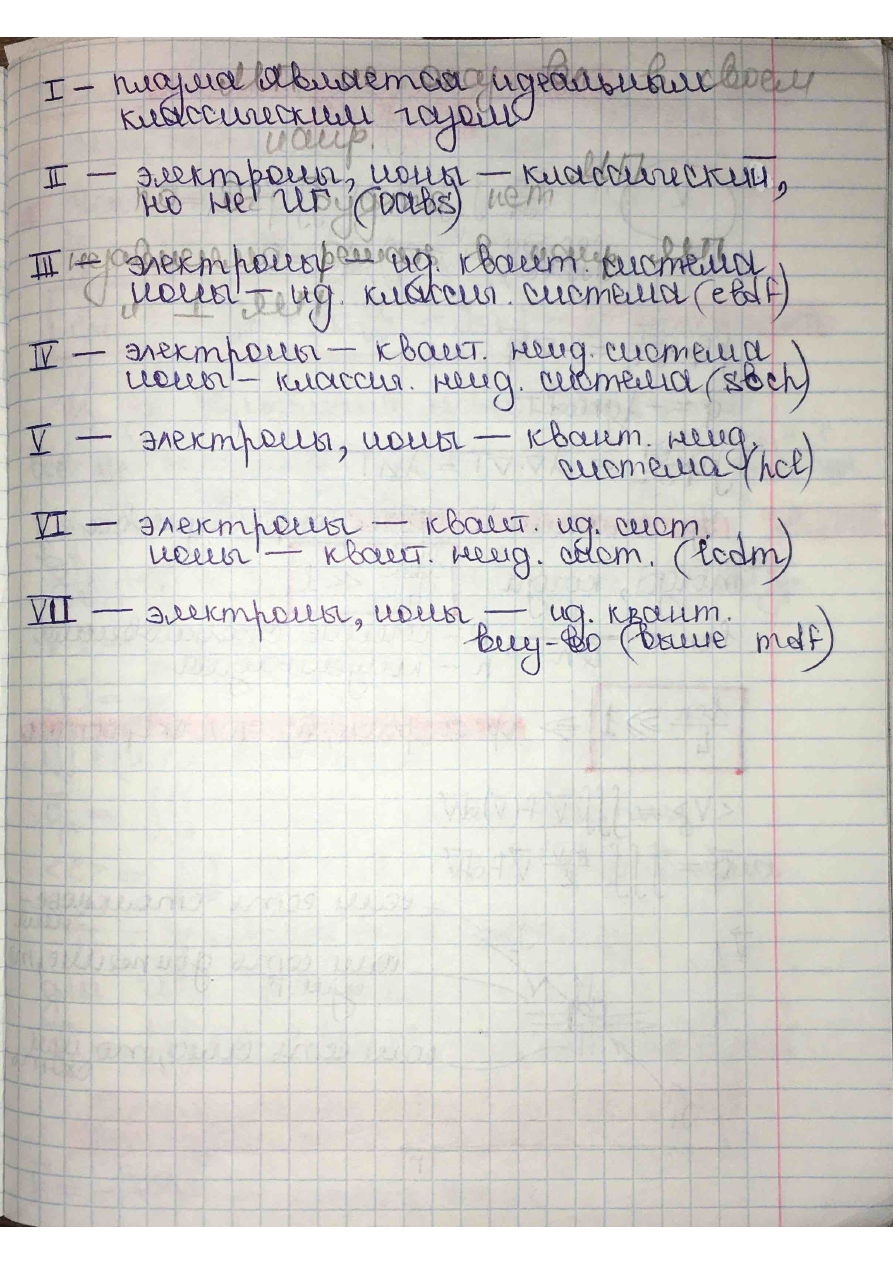 I – плазма является идеальным
классическим газом
II – электроны, ионы – классический,
но не ИГ (oabs)
III – электроны – ид. квант. система
ионы – ид. классич. система (ebdf)
IV – электроны – квант. неид. система
ионы – классич. неид. система (sbch)
V – электроны, ионы – квант. неид.
система (hcl)
VI – электроны – квант. ид. сист.
ионы – квант. неид. сист. (lcdm)
VII – электроны, ионы – ид. квант.
вещ-во (выше mdf)